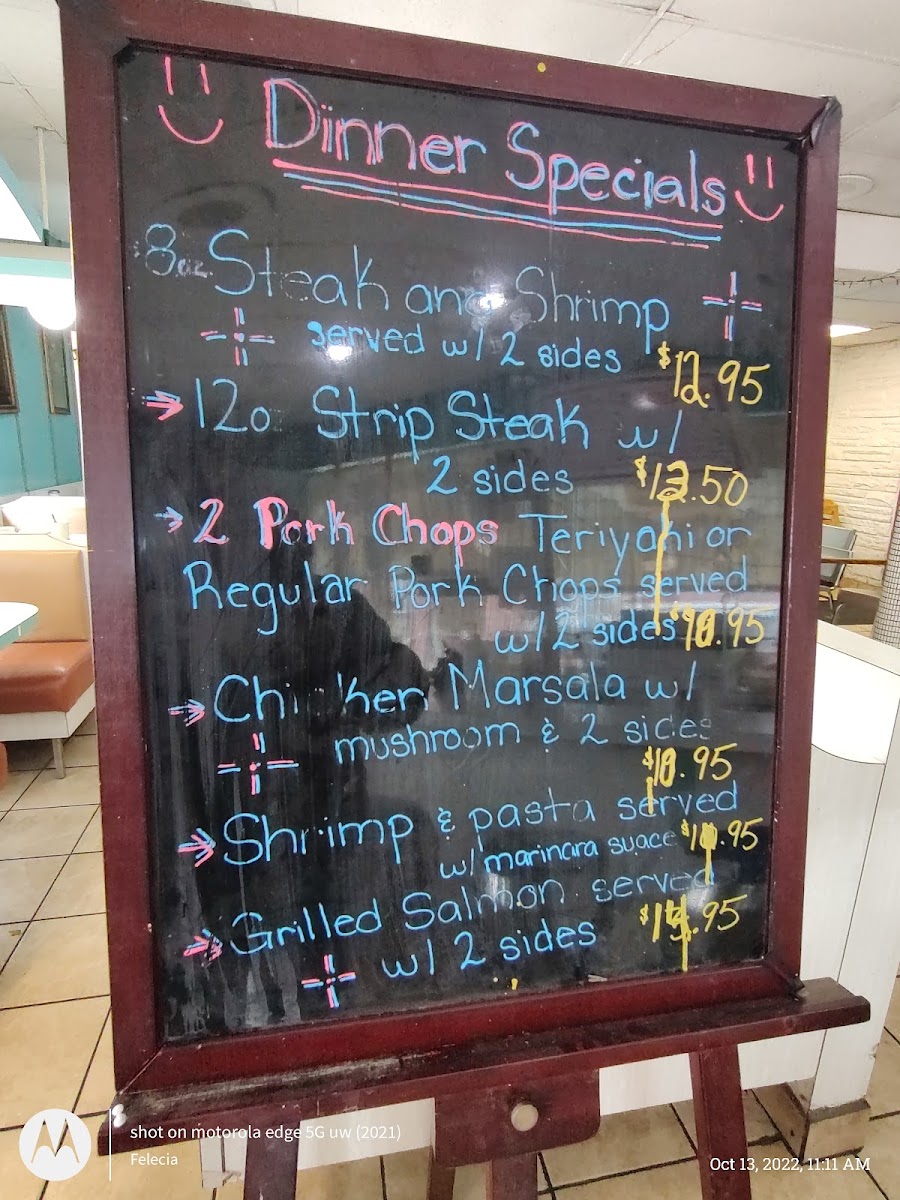 Dinner Specials
8oz. Steak and Shrimp
served w/ 2 sides
$12.95
12o Strip Steak w/
2 sides $13.50
2 Pork Chops Teriyaki or
Regular Pork Chops served
w/2 sides
Chicken Marsala w/
mushroom & 2 sides
Shrimp & pasta served
w/ marinara suace
Grilled Salmon served
w/ 2 sides
shot on motorola edge 5G uw (2021)
Felecia
Oct 13, 2022, 11:11 AM